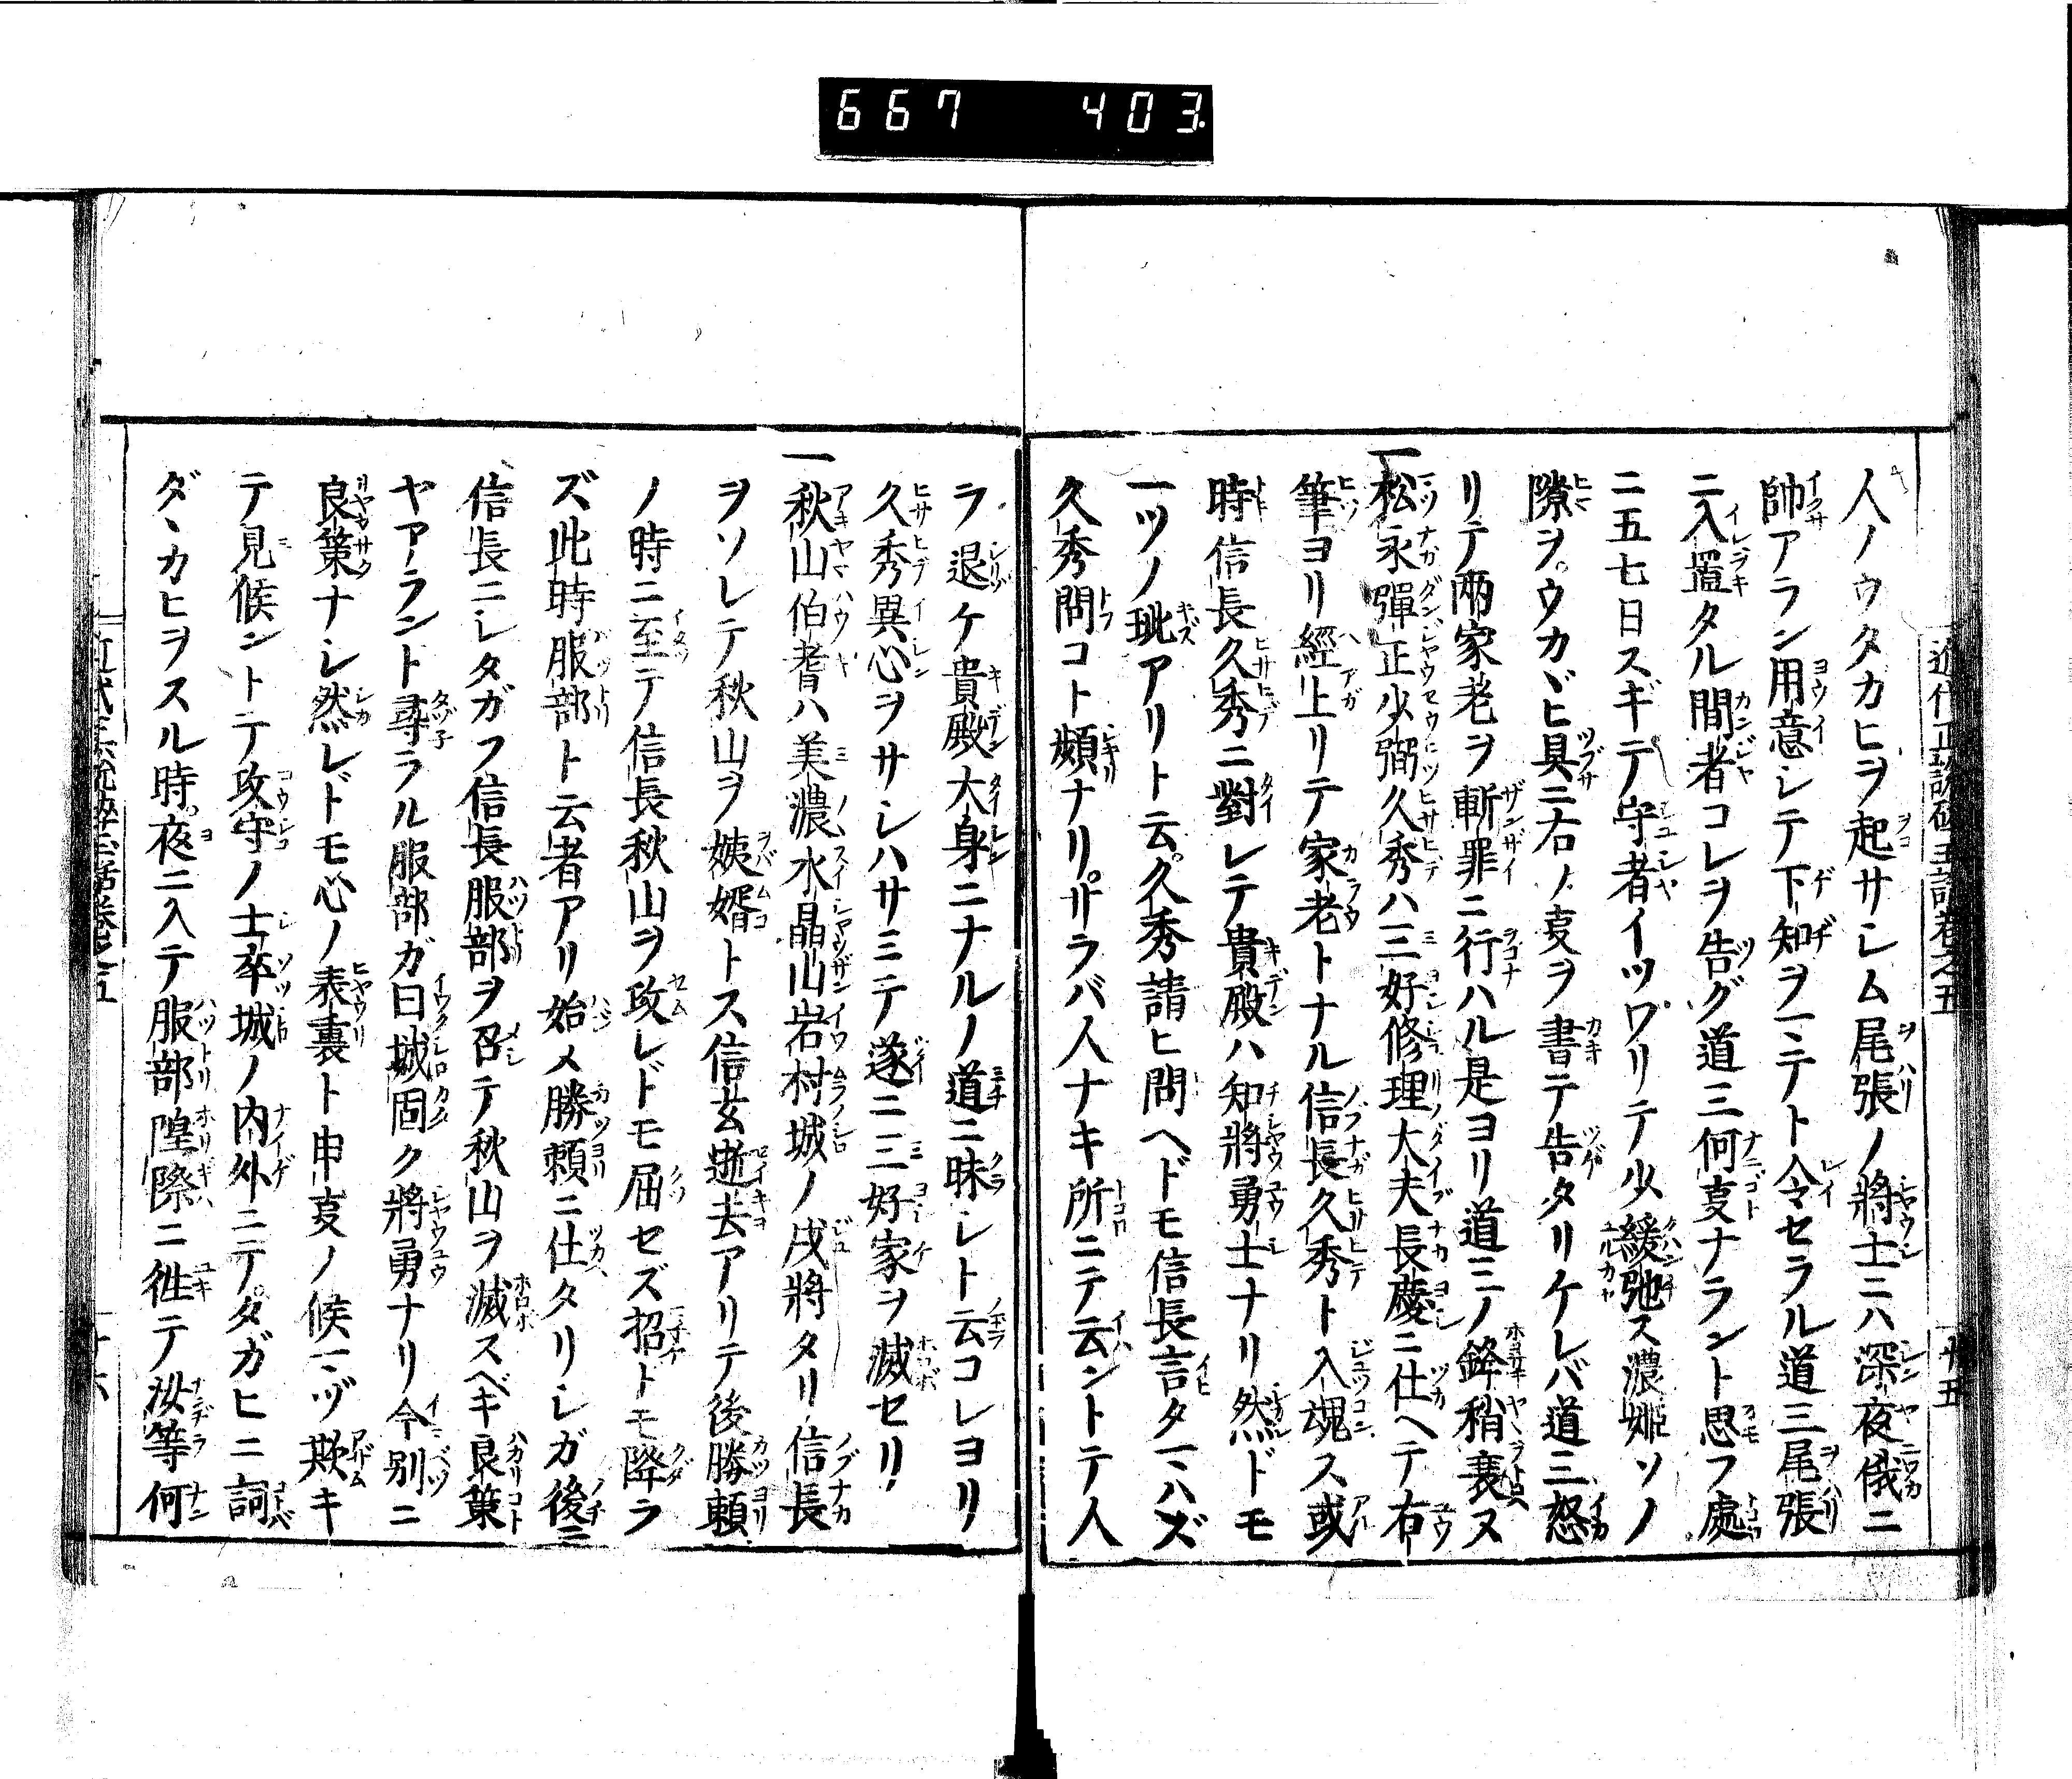 667 403.
近代正説砕玉話巻之五 十五
人ノウタカヒヲ起サシム尾張ノ將士ニハ深夜俄ニ
帥アラン用意シテ下知ヲマテト令セラル道三尾張
ニ入置タル間者コレヲ告グ道三何叓ナラント思フ處
ニ五七日スギテ守者イツワリテ少緩弛ス濃姫ソノ
隙ヲウカヾヒ具ニ右ノ叓ヲ書テ告タリケレバ道三怒
リテ兩家老ヲ斬罪ニ行ハル是ヨリ道三ノ鋒稍衰ヌ
一松永彈正少弼久秀ハ三好修理大夫長慶ニ仕ヘテ右
筆ヨリ經上リテ家老トナル信長久秀ト入魂ス或
時信長久秀ニ對シテ貴殿ハ知將勇士ナリ然ドモ
一ツノ玼アリト云久秀請ヒ問ヘドモ信長言タマハズ
久秀問コト頻ナリサラバ人ナキ所ニテ云ントテ人
ラ退ケ貴殿大身ニナルノ道ニ昧シト云コレヨリ
久秀異心ヲサシハサミテ遂ニ三好家ヲ滅セリ
一秋山伯耆ハ美濃水晶山岩村城ノ戍將タリ信長
ヲソレテ秋山ヲ姨婿トス信玄逝去アリテ後勝頼
ノ時ニ至テ信長秋山ヲ攻レドモ屈セズ招トモ降ラ
ズ此時服部ト云者アリ始メ勝頼ニ仕タリシガ後ニ
信長ニシタガフ信長服部ヲ召テ秋山ヲ滅スベキ良策
ヤアラント尋ラル服部ガ曰城固ク將勇ナリ今別ニ
良策ナシ然レドモ心ノ表裏ト申叓ノ候マヅ欺キ
テ見候ントテ攻守ノ士卒城ノ内外ニテタガヒニ詞
ダヽカヒヲスル時夜ニ入テ服部隍際ニ徃テ汝等何
近代正説砕玉話巻之五 十六